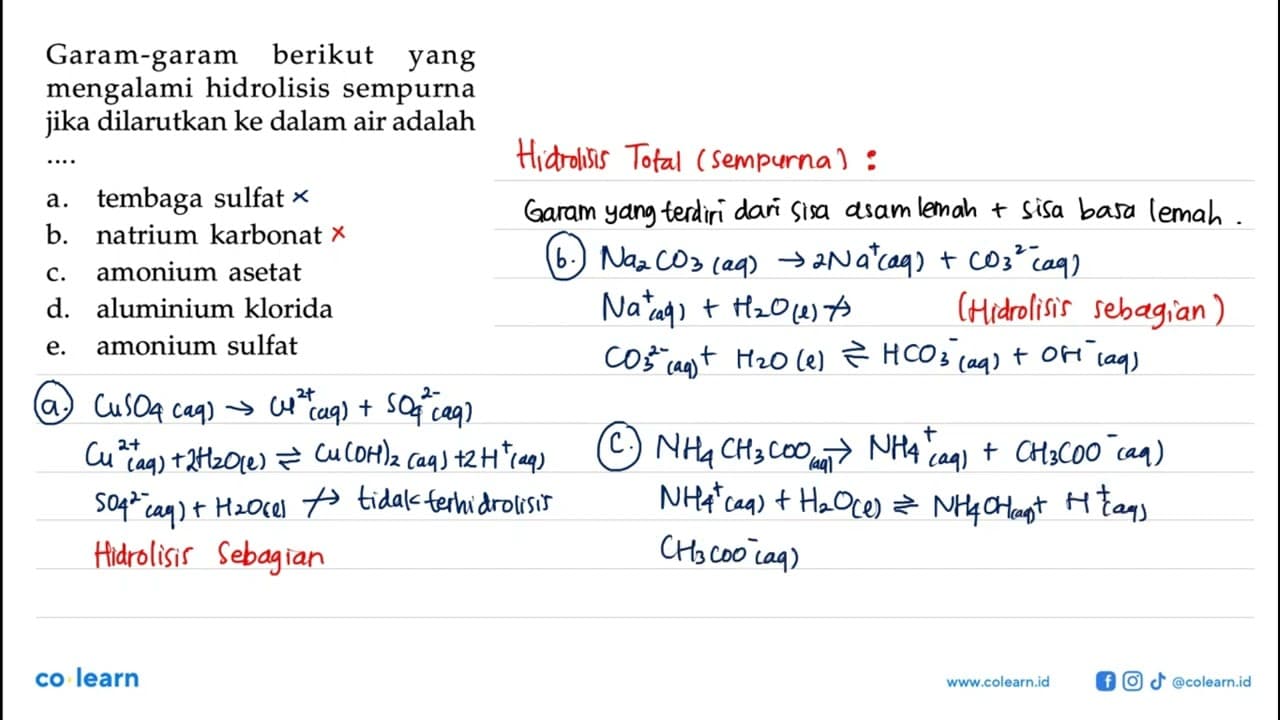 Garam-garam berikut yang
mengalami hidrolisis sempurna
jika dilarutkan ke dalam air adalah
....
a. tembaga sulfat ×
b. natrium karbonat ×
c. amonium asetat
d. aluminium klorida
e. amonium sulfat
Hidrolisis Total (sempurna) :
Garam yang terdiri dari sisa asam lemah + sisa basa lemah .
b. Na₂CO₃ (aq) → 2Na⁺(aq) + CO₃²⁻(aq)
Na⁺(aq) + H₂O(l) ↛ (Hidrolisis sebagian)
CO₃²⁻(aq) + H₂O (l) ⇌ HCO₃⁻(aq) + OH⁻(aq)
a. CuSO₄ (aq) → Cu²⁺(aq) + SO₄²⁻(aq)
Cu²⁺(aq) + 2H₂O(l) ⇌ Cu(OH)₂ (aq) + 2H⁺(aq)
SO₄²⁻(aq) + H₂O(l) ↛ tidak terhidrolisis
Hidrolisis Sebagian
c. NH₄CH₃COO(aq) → NH₄⁺(aq) + CH₃COO⁻(aq)
NH₄⁺(aq) + H₂O(l) ⇌ NH₄OH(aq) + H⁺(aq)
CH₃COO⁻(aq)
co learn
www.colearn.id
@colearn.id